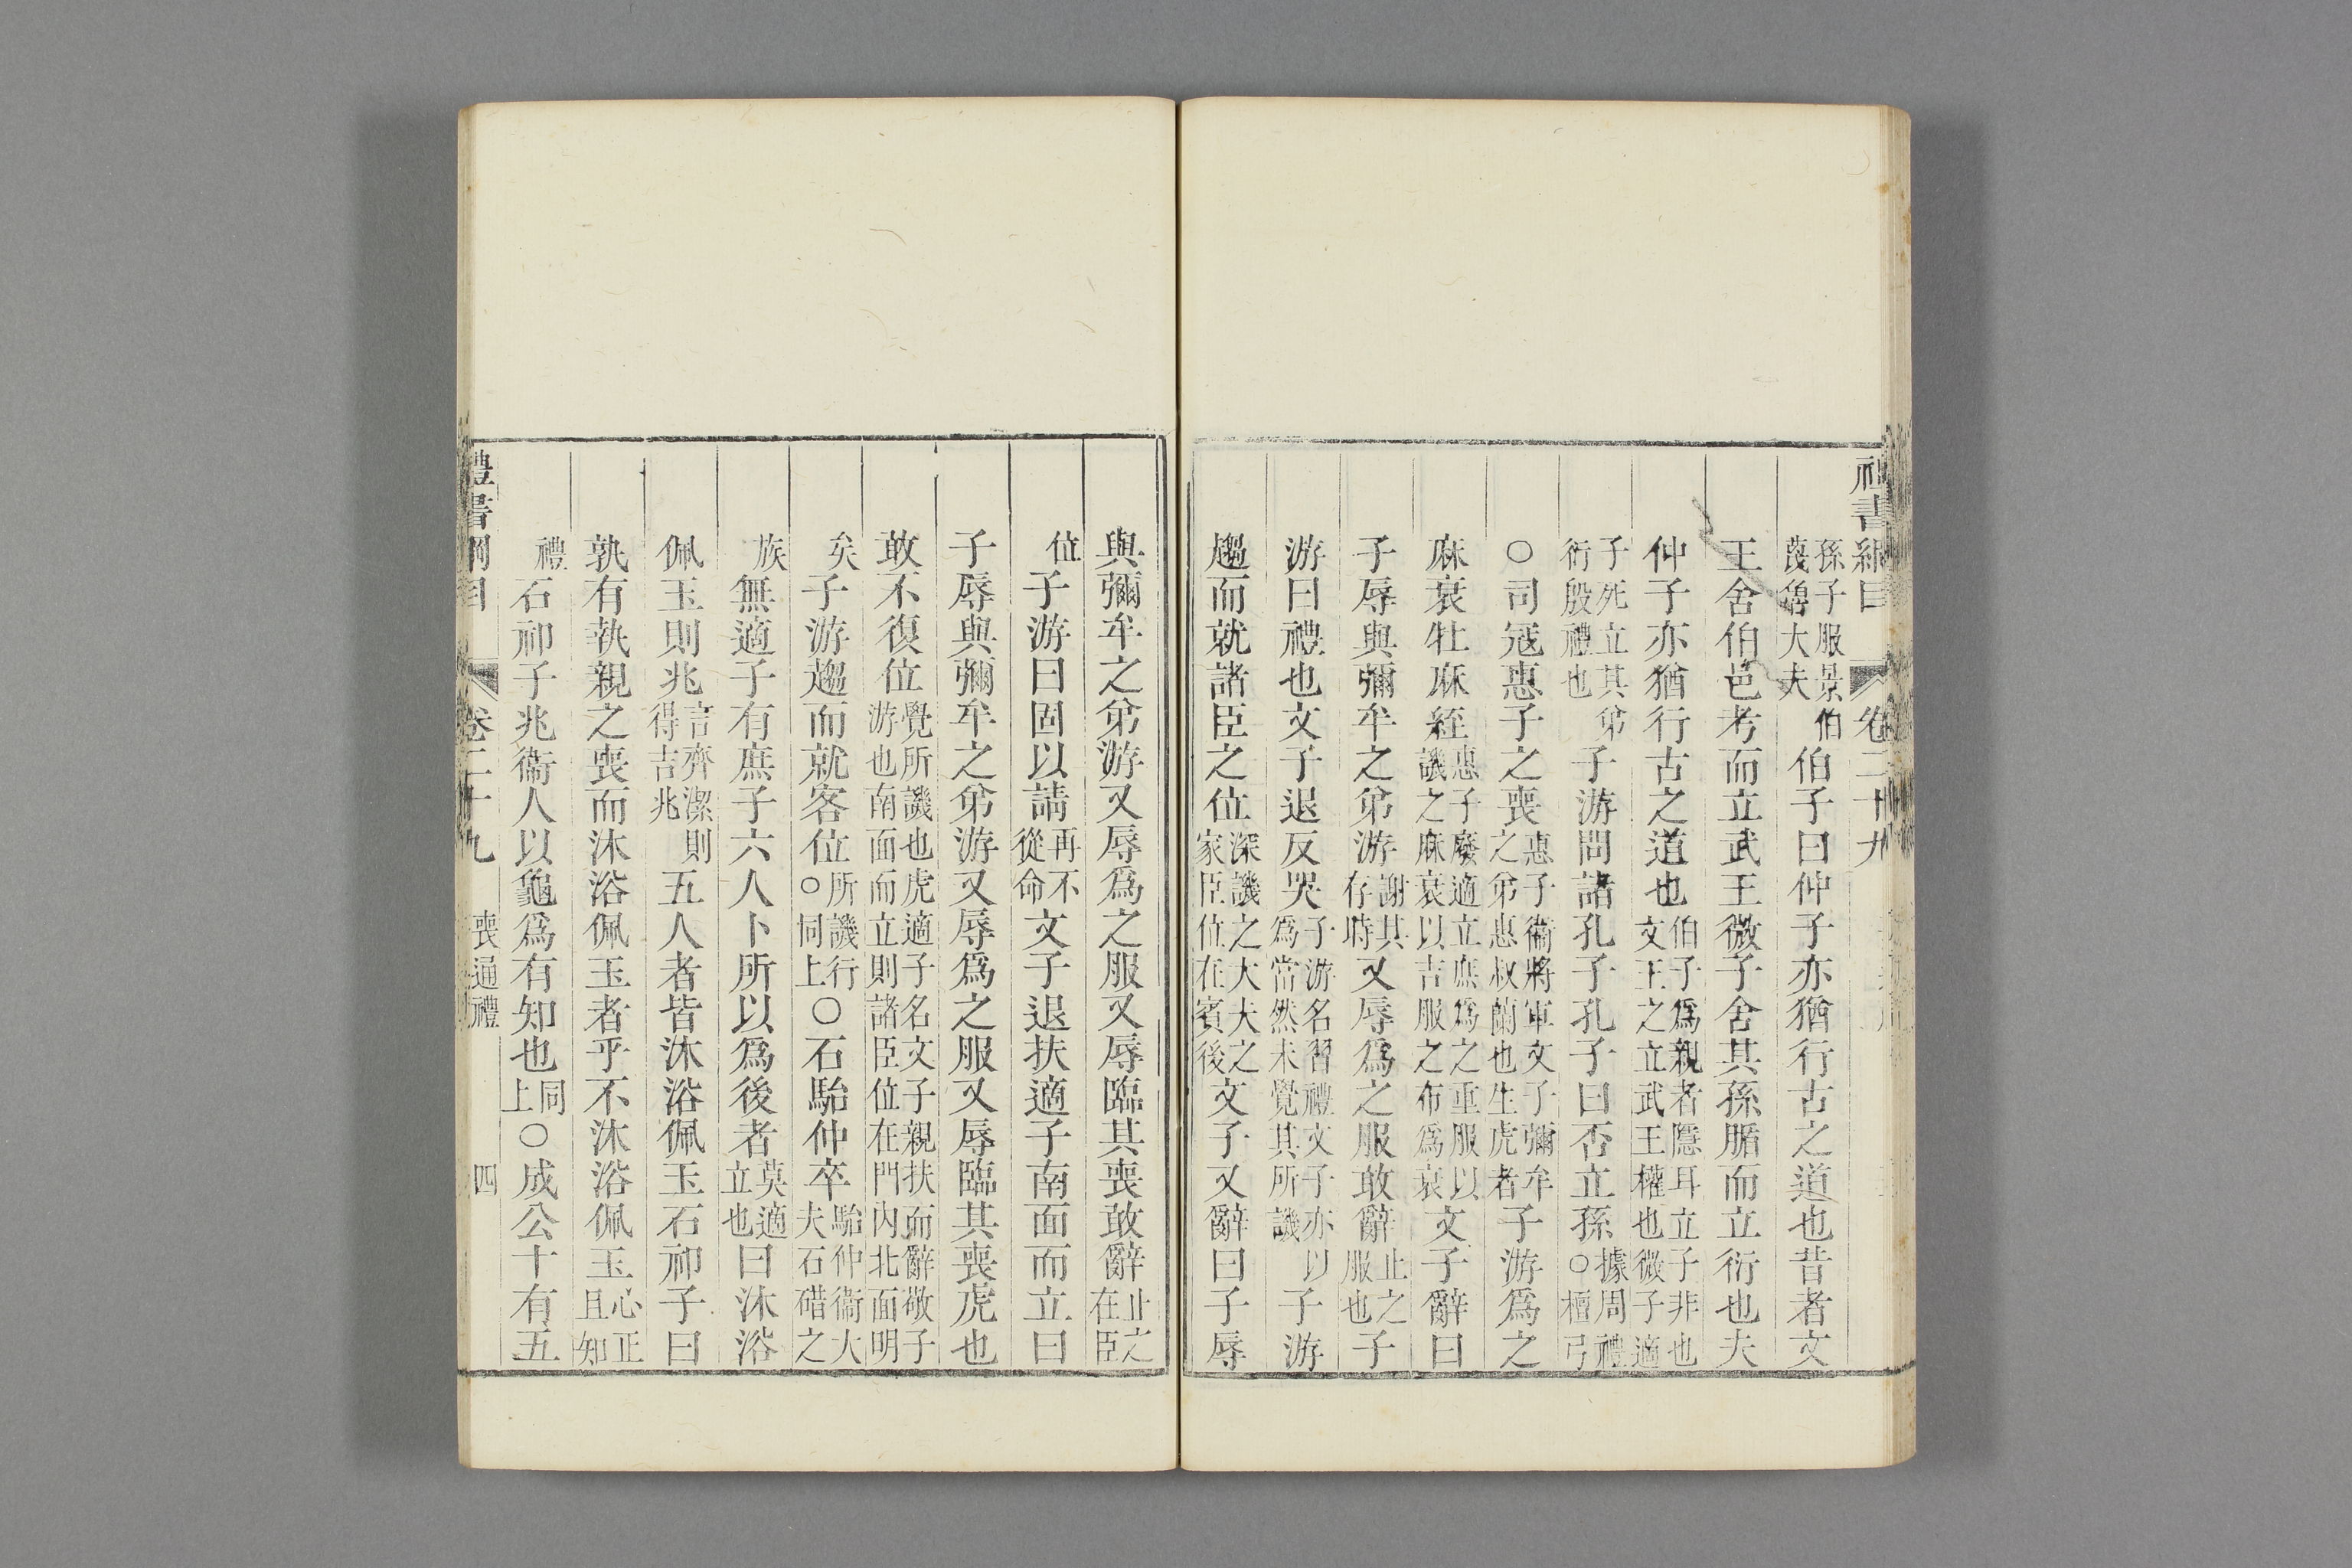 禮書綱目 卷二十九
孫子服景伯蔑魯大夫伯子曰仲子亦猶行古之道也昔者文
王舍伯邑考而立武王微子舍其孫腯而立衍也夫
仲子亦猶行古之道也伯子爲親者隱耳立子非也文王之立武王權也微子適
子死立其弟衍殷禮也子游問諸孔子孔子曰否立孫據周禮○檀弓
○司寇惠子之喪惠子衞將軍文子彌牟之弟惠叔蘭也生虎者子游爲之
麻衰牡麻絰惠子廢適立庶爲之重服以譏之麻衰以吉服之布爲衰文子辭曰
子辱與彌牟之弟游謝其存時又辱爲之服敢辭止之服也子
游曰禮也文子退反哭子游名習禮文子亦以爲當然未覺其所譏子游
趨而就諸臣之位深譏之大夫之家臣位在賓後文子又辭曰子辱
與彌牟之弟游又辱爲之服又辱臨其喪敢辭止之在臣
位子游曰固以請再不從命文子退扶適子南面而立曰
子辱與彌牟之弟游又辱爲之服又辱臨其喪虎也
敢不復位覺所譏也虎適子名文子親扶而辭敬子游也南面而立則諸臣位在門內北面明
矣子游趨而就客位所譏行○同上○石駘仲卒駘仲衞大夫石碏之
族無適子有庶子六人卜所以爲後者莫適立也曰沐浴
佩玉則兆言齊潔則得吉兆五人者皆沐浴佩玉石祁子曰
孰有執親之喪而沐浴佩玉者乎不沐浴佩玉心正且知
禮石祁子兆衞人以龜爲有知也同上○成公十有五
禮書綱目 卷二十九 喪通禮 四